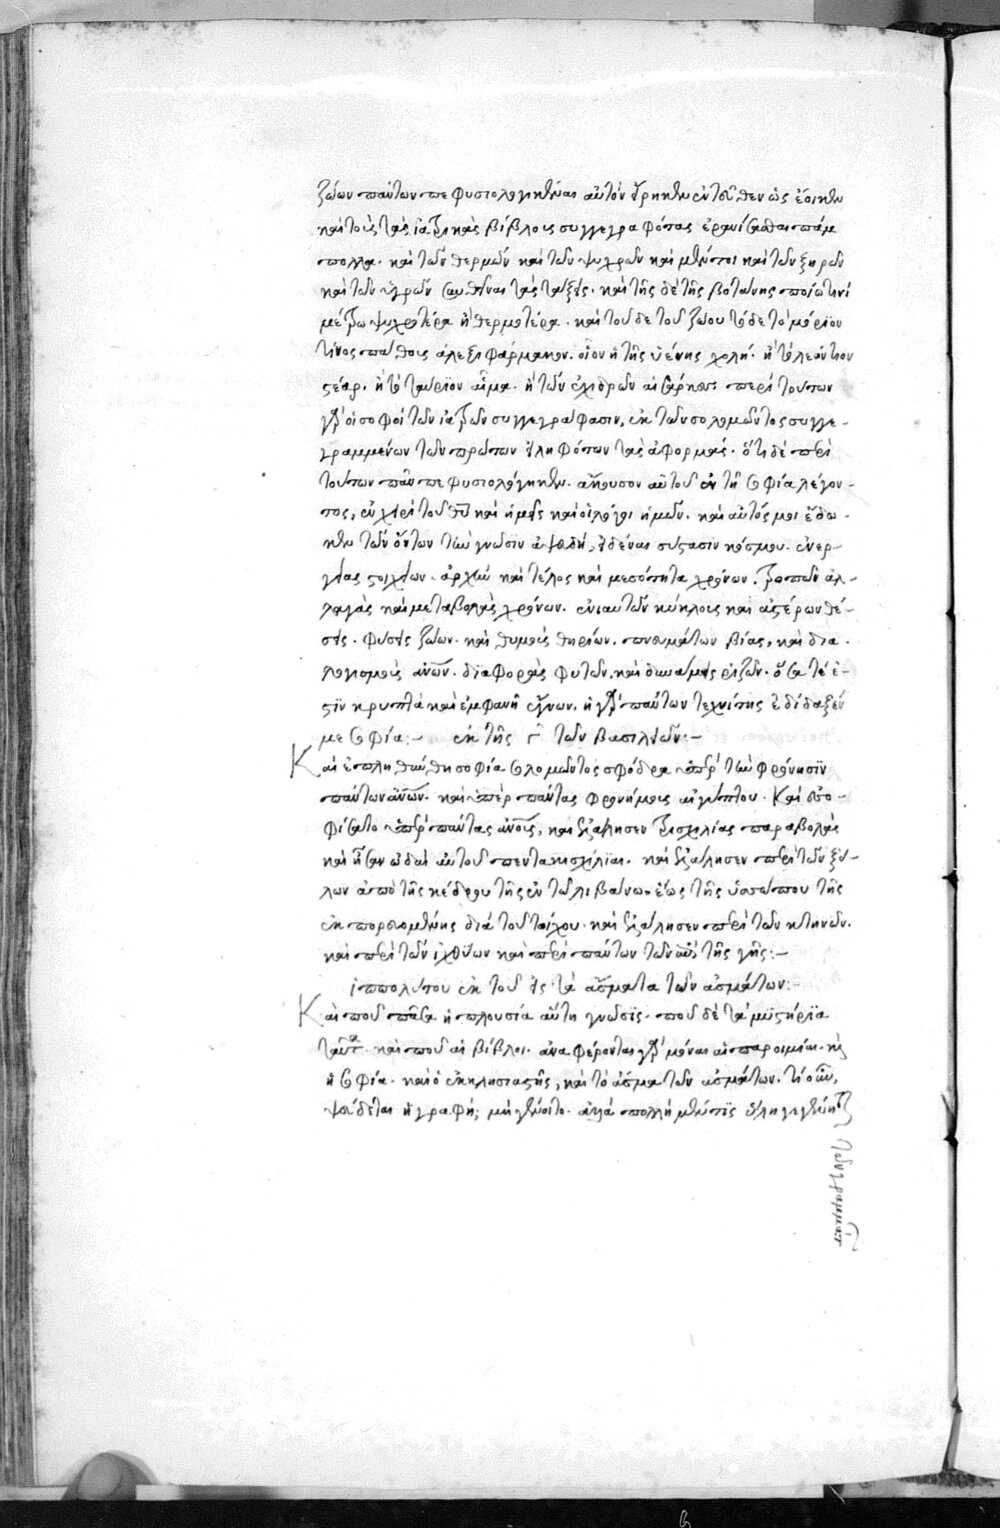 ζώων πάντων πεφυσιολογηκέναι αὐτόν εἴρηκεν ἐντεῦθεν ὡς ἔοικεν
καὶ τοὺς τὰς ἰατρικὰς βίβλους συγγεγραφότας ἐρανίσασθαι πάμ
πολλα. καὶ τῶν θερμῶν καὶ τῶν ψυχρῶν καὶ μέντοι καὶ τῶν ξηρῶν
καὶ τῶν ὑγρῶν τὰς τάξεις. καὶ τῆς δὲ τῆς βοτάνης ποίω τινί
μέτρω ψυχροτέρα ἢ θερμοτέρα. καὶ τοῦδε τοῦ ζώου τόδε τὸ μόριον
τίνος πάθους ἀλεξιφάρμακον. οἷον ἡ τῆς ὑένης χολή. ἢ τὸ λεόντιον
στέαρ. ἢ τὸ ταύριον αἷμα. ἢ τῶν ἐχιδνῶν αἱ σάρκες περὶ τούτων
γὰρ οἱ σοφοὶ τῶν ἰατρῶν συγγεγράφασιν, ἐκ τῶν σολομῶντος συγγε-
γραμμένων τῶν πρώτων εἰληφότων τὰς ἀφορμάς. ὅτι δὲ περὶ
τούτων πάντων πεφυσιολόγηκεν. ἄκουσον αὐτοῦ ἐν τῆ σοφία λέγον-
τος, ἐν χειρὶ τοῦ θυ καὶ ἡμεῖς καὶ οἱ λόγοι ἡμῶν. καὶ αὐτός μοι ἔδω-
κεν τῶν ὄντων τὴν γνῶσιν ἀψευδῆ, εἰδέναι σύστασιν κόσμου. ἐνερ-
γείας στοιχείων. ἀρχὴν καὶ τέλος καὶ μεσότητα χρόνων. τροπῶν ἀλ-
λαγὰς καὶ μεταβολὰς χρόνων. ἐνιαυτῶν κύκλους καὶ ἀστέρων θέ-
σεις. φύσεις ζώων. καὶ θυμοὺς θηρίων. πνευμάτων βίας, καὶ δια
λογισμοὺς ἀνων. διαφορὰς φυτῶν. καὶ δυνάμεις ῥιζῶν. ὅσα τέ ἐ-
στϊν κρυπτὰ καὶ ἐμφανῆ ἔγνων. ἡ γὰρ πάντων τεχνίτης ἐδίδαξέν
με σοφία:- ἐκ τῆς Γ τῶν βασιλειῶν:-
Καὶ ἐπληθύνθη σοφία σολομῶντος σφόδρα ὑπὲρ τὴν φρόνησϊν
πάντων ἀνων. καὶ ὑπὲρ πάντας φρονίμους αἰγύπτου. Καὶ ἐσο-
φίσατο ὑπὲρ πάντας ἀνους, καὶ ἐλάλησεν τρισχιλίας παραβολὰς
καὶ ἦσαν ὠδαὶ αὐτοῦ πεντακισχίλϊαι. καὶ ἐλάλησεν περὶ τῶν ξύ-
λων ἀπὸ τῆς κέδρου τῆς ἐν τῶ λιβάνω. ἕως τῆς ὑσσώπου τῆς
ἐκπορευομένης διὰ τοῦ τοίχου. καὶ ἐλάλησεν περὶ τῶν κτηνῶν.
καὶ περὶ τῶν ἰχθύων καὶ περὶ πάντων τῶν τῆς γῆς:-
ἱππολύτου ἐκ τοῦ εἰς τὰ ἄσματα τῶν ἀσμάτων:-
Καὶ ποῦ πᾶσα ἡ πλουσία αὕτη γνῶσϊς. ποῦ δὲ τὰ μϋστήρϊα
ταῦτα. καὶ ποῦ αἱ βίβλοι. ἀναφέρονται γὰρ μόναι αἱ παροιμίαι. καὶ
ἡ σοφία. καὶ ὁ ἐκκλησιαστὴς, καὶ τὸ ἆσμα τῶν ἀσμάτων. τί οὖν,
ψεύδεται ἡ γραφή; μὴ γένοιτο. ἀλλὰ πολλὴ μέν τϊς ὕλη γεγένηται
τῶν γραμμάτ